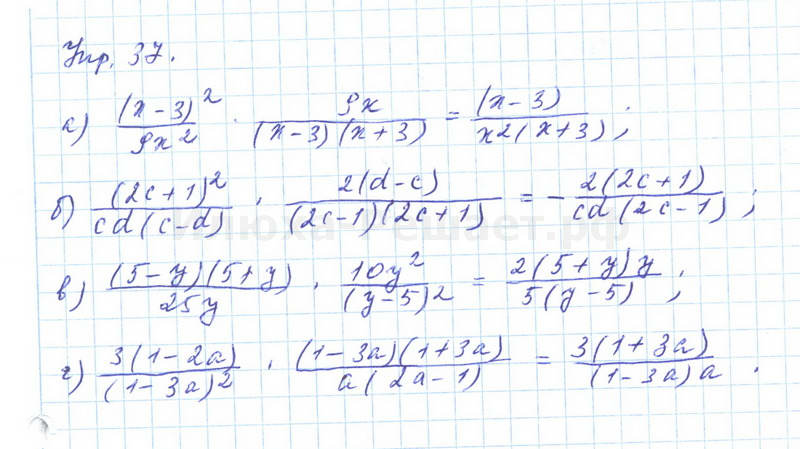 Упр. 37.
а) (x-3)²/9x² · 9x/(x-3)(x+3) = (x-3)/x2(x+3) ;
б) (2c+1)²/cd(c-d) · 2(d-c)/(2c-1)(2c+1) = - 2(2c+1)/cd(2c-1) ;
в) (5-y)(5+y)/25y · 10y²/(y-5)² = 2(5+y)y/5(y-5) ;
г) 3(1-2a)/(1-3a)² · (1-3a)(1+3a)/a(2a-1) = 3(1+3a)/(1-3a)a .